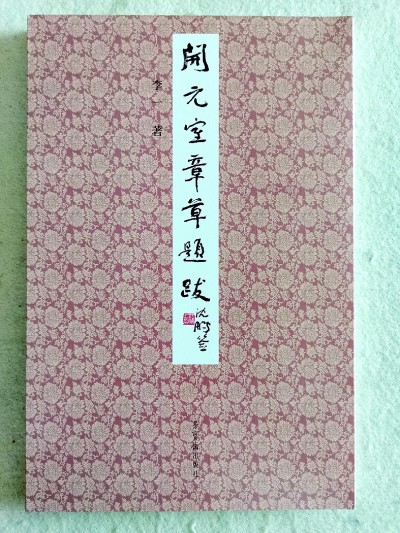 開元室章草題跋
沈鵬签
李一 著